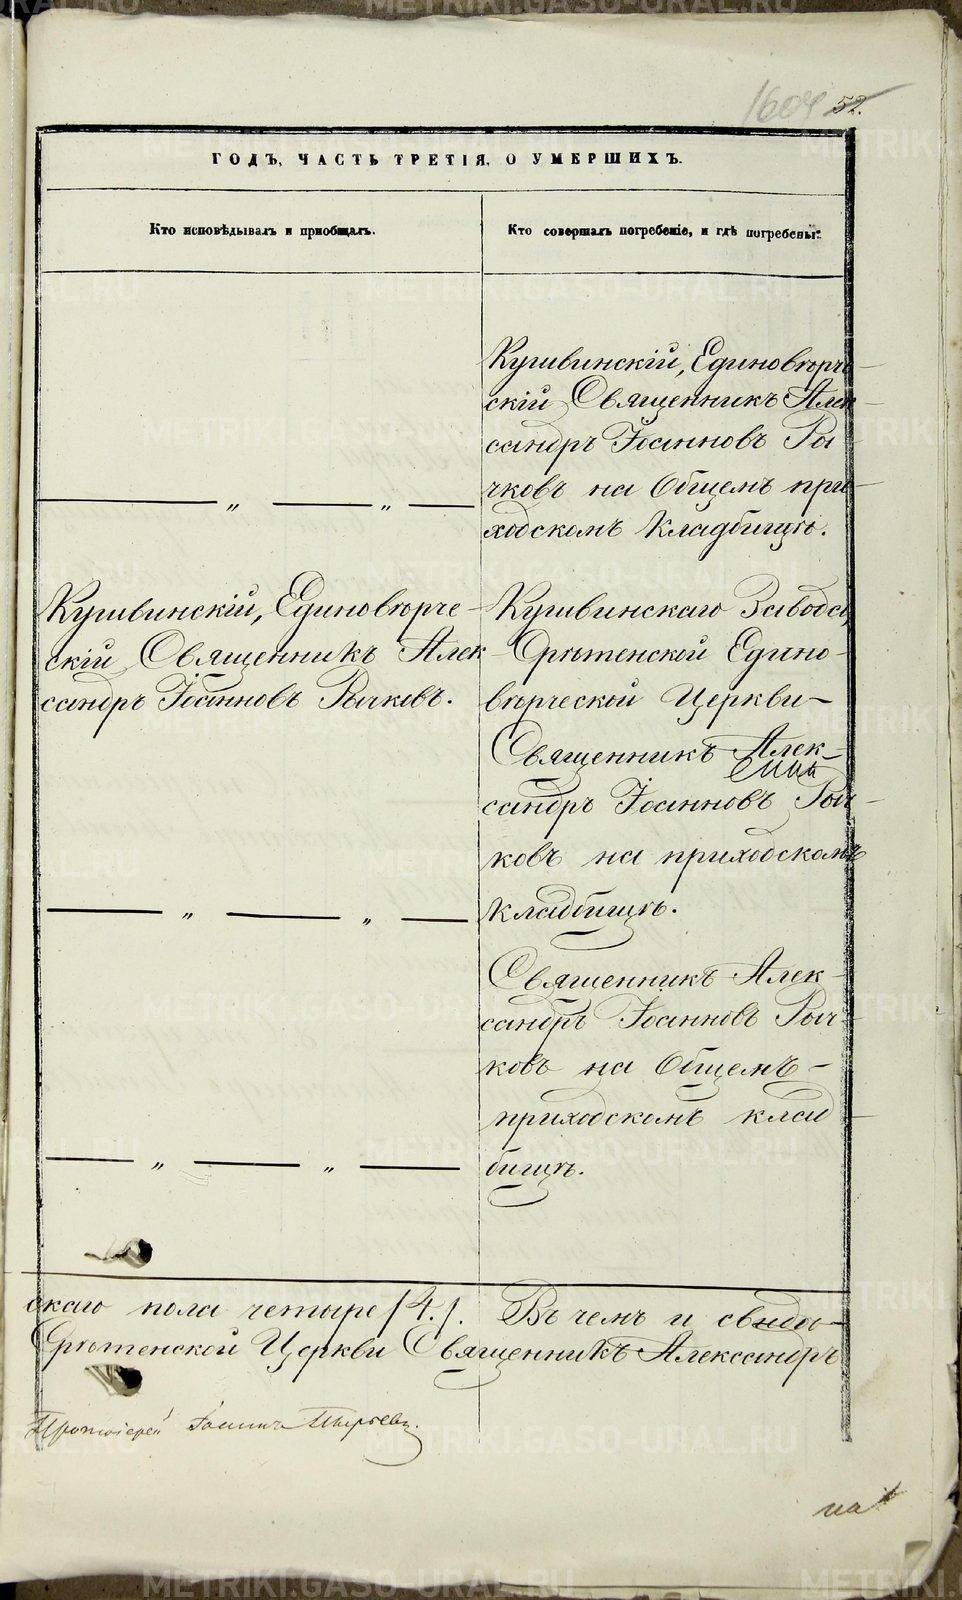 1604 52.
ГОДЪ, ЧАСТЬ ТРЕТІЯ, О УМЕРШИХЪ.
Кто исповѣдывалъ и пріобщалъ.
Кто совершалъ погребеніе, и гдѣ погребены.
Кушвинскій, Единовѣрче
скій Священникъ Алек
сандръ Іоанновъ Ры
чковъ на Общемъ при
— „ — „ —
ходскомъ Кладбищѣ.
Кушвинскій, Единовѣрче-
скій Священникъ Алек
сандръ Іоанновъ Рычковъ.
Кушвинскаго Завода,
Срѣтенской Едино-
вѣрческой Церкви
Священникъ Алек-
сандръ Іоанновъ Рыч
ковъ на приходскомъ
— „ — „ —
Кладбищѣ.
Священникъ Алек-
сандръ Іоанновъ Рыч-
ковъ на Общемъ-
приходскомъ клад
— „ — „ —
бищѣ.
скаго пола четыре (4.). Въ чемъ и свидѣ-
Срѣтенской Церкви Священникъ Александръ
Протоіерей Іоаннъ
на
METRIKI.GASO-URAL.RU